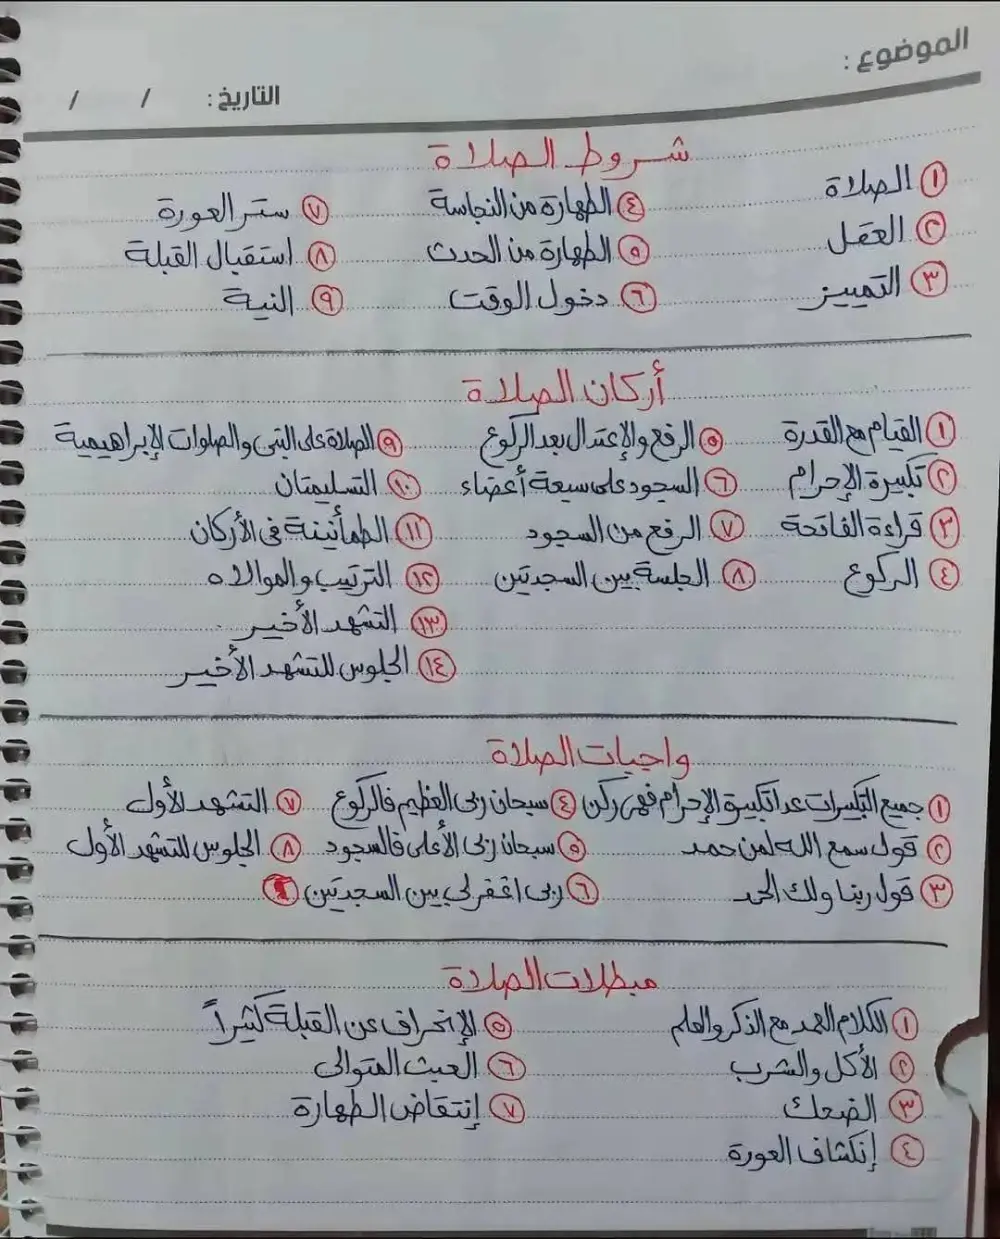 الموضوع :
التاريخ : / /
شروط الصلاة
١ الصلاة ٤ الطهارة من النجاسة ٧ ستر العورة
٢ العقل ٥ الطهارة من الحدث ٨ استقبال القبلة
٣ التمييز ٦ دخول الوقت ٩ النية
أركان الصلاة
١ القيام مع القدرة ٥ الرفع والإعتدال بعد الركوع ٩ الصلاة على النبى والصلوات الإبراهيمية
٢ تكبيرة الإحرام ٦ السجود على سبعة أعضاء ١٠ التسليمتان
٣ قراءة الفاتحة ٧ الرفع من السجود ١١ الطمأنينة فى الأركان
٤ الركوع ٨ الجلسة بين السجدتين ١٢ الترتيب والموالاه
١٣ التشهد الأخير
١٤ الجلوس للتشهد الأخير
واجبات الصلاة
١ جميع التكبيرات عدا تكبيرة الإحرام فهى ركن ٤ سبحان ربى العظيم فالركوع ٧ التشهد الأول
٢ قول سمع الله لمن حمد ٥ سبحان ربى الأعلى فالسجود ٨ الجلوس للتشهد الأول
٣ قول ربنا ولك الحمد ٦ ربى اغفرلي بين السجدتين
مبطلات الصلاة
١ الكلام العمد مع الذكر والعلم ٥ الإنحراف عن القبلة كثيراً
٢ الأكل والشرب ٦ العبث المتوالى
٣ الضحك ٧ إنتقاض الطهارة
٤ إنكشاف العورة